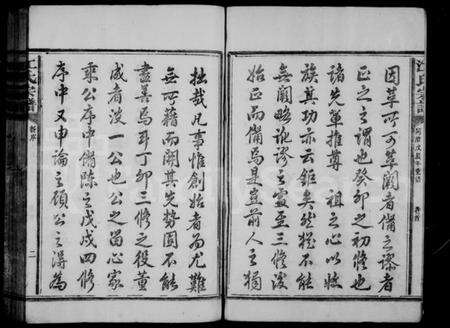 因草以可草闕者備之謬者
正之之謂也癸卯之初修也
諸先軰推尊 祖之心以收
族其功亦云鉅矣然稽不能
無闕略訛謬之處至三修後
始正而備焉是豈前人之獨
拙哉凡事惟創始者為尤難
無可藉而闕其先勢固不能
盡善焉耳丁卯三修之役董
成者没一公也公之留心家
乘公序中備陳之戊戌四修
序中又申論之顧公之得為
江氏宗譜
新序
二